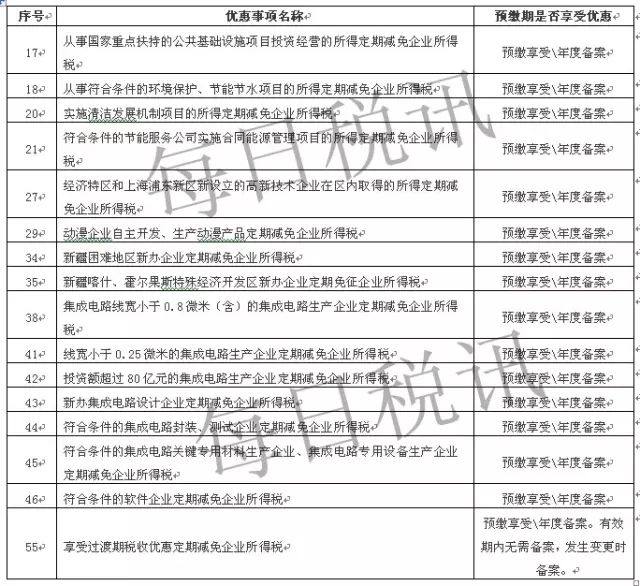 序号 优惠事项名称 预缴期是否享受优惠
17 从事国家重点扶持的公共基础设施项目投资经营的所得定期减免企业所得
税 预缴享受\年度备案
18 从事符合条件的环境保护、节能节水项目的所得定期减免企业所得税 预缴享受\年度备案
20 实施清洁发展机制项目的所得定期减免企业所得税 预缴享受\年度备案
21 符合条件的节能服务公司实施合同能源管理项目的所得定期减免企业所得
税 预缴享受\年度备案
27 经济特区和上海浦东新区新设立的高新技术企业在区内取得的所得定期减
免企业所得税 预缴享受\年度备案
29 动漫企业自主开发、生产动漫产品定期减免企业所得税 预缴享受\年度备案
34 新疆困难地区新办企业定期减免企业所得税 预缴享受\年度备案
35 新疆喀什、霍尔果斯特殊经济开发区新办企业定期免征企业所得税 预缴享受\年度备案
38 集成电路线宽小于0.8微米（含）的集成电路生产企业定期减免企业所得
税 预缴享受\年度备案
41 线宽小于0.25微米的集成电路生产企业定期减免企业所得税 预缴享受\年度备案
42 投资额超过80亿元的集成电路生产企业定期减免企业所得税 预缴享受\年度备案
43 新办集成电路设计企业定期减免企业所得税 预缴享受\年度备案
44 符合条件的集成电路封装、测试企业定期减免企业所得税 预缴享受\年度备案
45 符合条件的集成电路关键专用材料生产企业、集成电路专用设备生产企业
定期减免企业所得税 预缴享受\年度备案
46 符合条件的软件企业定期减免企业所得税 预缴享受\年度备案
55 享受过渡期税收优惠定期减免企业所得税 预缴享受\年度备案。有效
期内无需备案，发生变更时
备案。
每日税讯
每日税讯